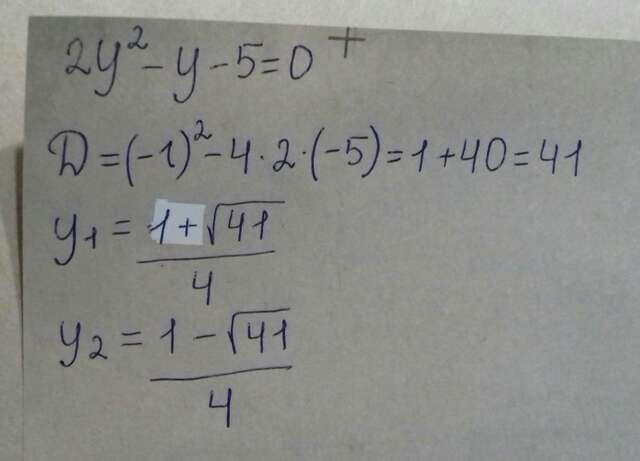 2y² - y - 5 = 0 +
D = (-1)² - 4 · 2 · (-5) = 1 + 40 = 41
y₁ = 1 + √41
4
y₂ = 1 - √41
4